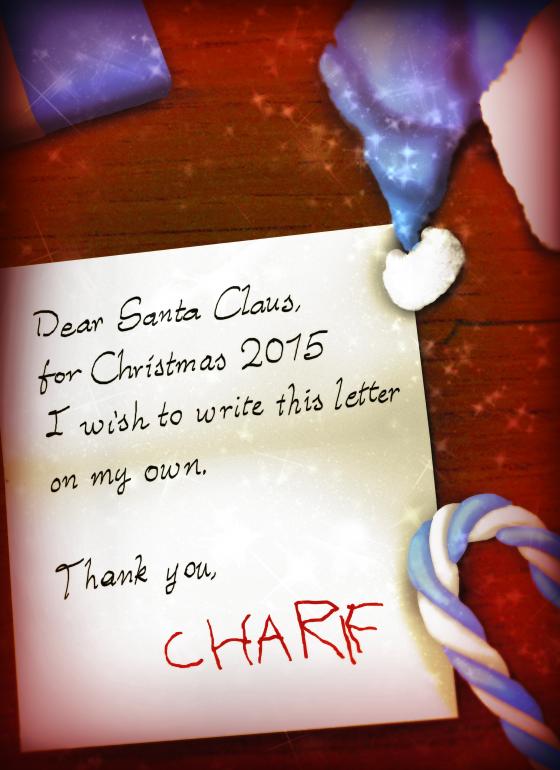 Dear Santa Claus,
for Christmas 2015
I wish to write this letter
on my own.
Thank you,
CHARIF